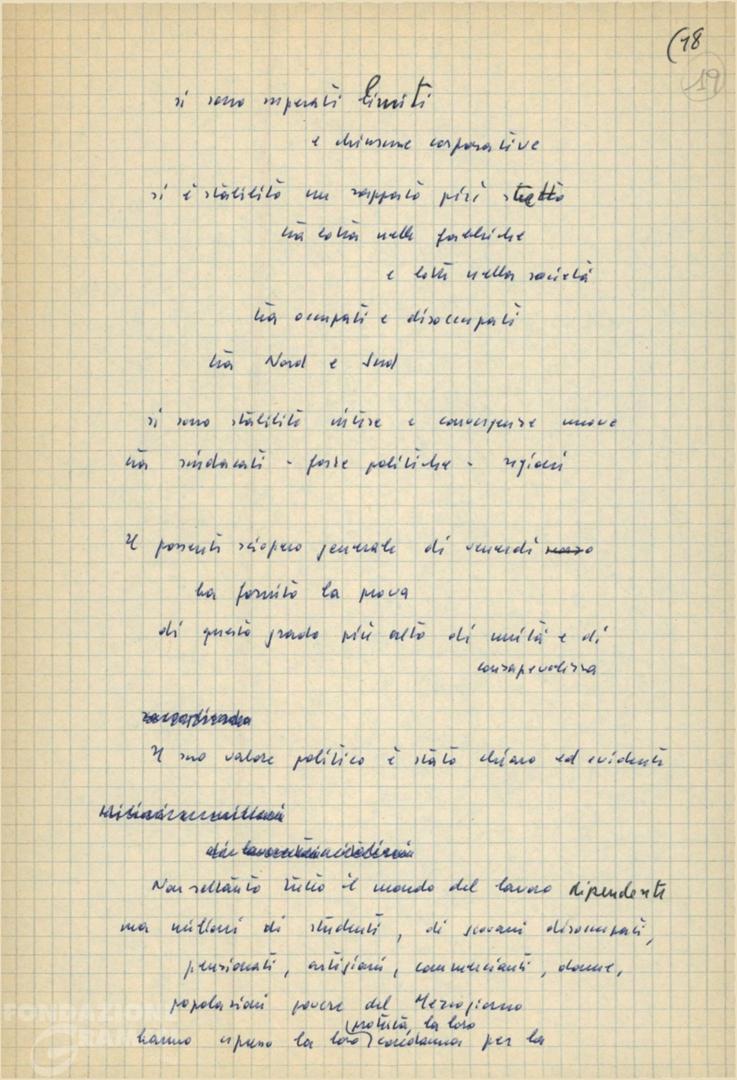 (18
19
si sono superati limiti
e chiusure corporative
si è stabilito un rapporto più stretto
tra lotta nelle fabbriche
e lotta nella società
tra occupati e disoccupati
tra Nord e Sud
si sono stabilite intese e convergenze nuove
tra sindacati - forze politiche - regioni
Il possente sciopero generale di venerdì
ha fornito la prova
di questo grado più alto di unità e di
consapevolezza
Il suo valore politico è stato chiaro ed evidente
Non soltanto tutto il mondo del lavoro dipendente
ma milioni di studenti, di giovani disoccupati,
pensionati, artigiani, commercianti, donne,
popolazioni povere del Mezzogiorno
protesta, la loro
hanno espresso la loro condanna per la
FONDAZIONE